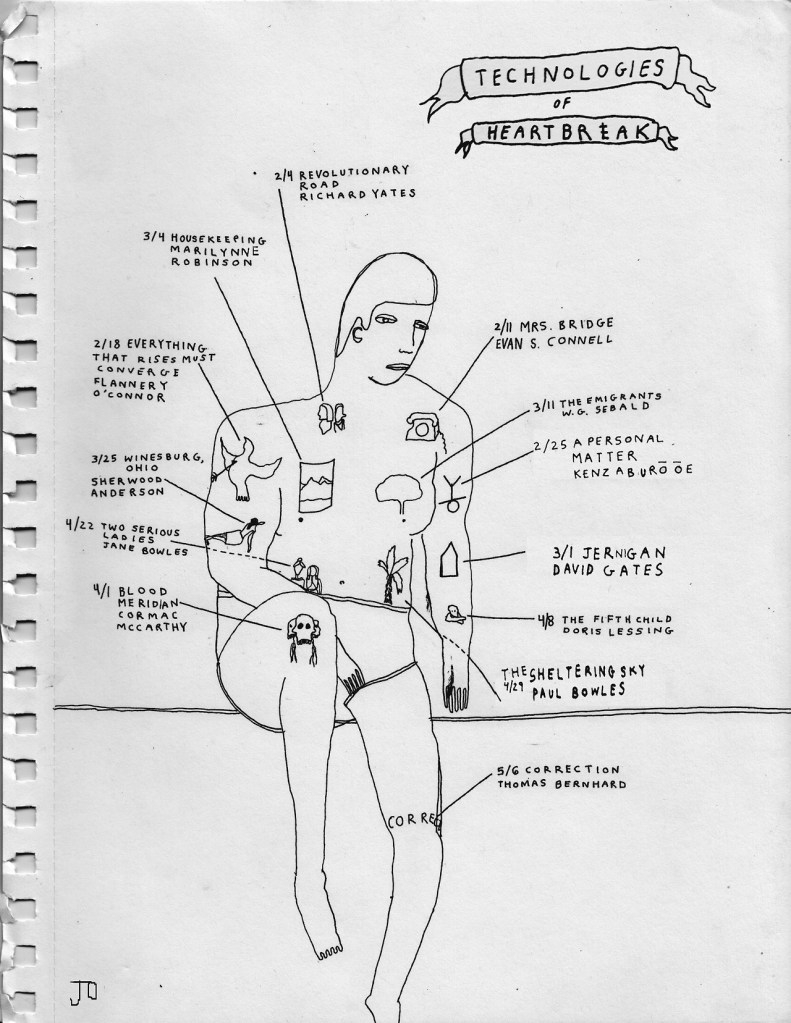 TECHNOLOGIES
OF
HEARTBREAK
2/4 REVOLUTIONARY
ROAD
RICHARD YATES
3/4 HOUSEKEEPING
MARILYNNE
ROBINSON
2/18 EVERYTHING
THAT RISES MUST
CONVERGE
FLANNERY
O'CONNOR
2/11 MRS. BRIDGE
EVAN S. CONNELL
3/11 THE EMIGRANTS
W.G. SEBALD
2/25 A PERSONAL
MATTER
KENZABURŌ ŌE
3/25 WINESBURG,
OHIO
SHERWOOD
ANDERSON
4/22 TWO SERIOUS
LADIES
JANE BOWLES
3/1 JERNIGAN
DAVID GATES
4/1 BLOOD
MERIDIAN
CORMAC
MCCARTHY
4/8 THE FIFTH CHILD
DORIS LESSING
THE SHELTERING SKY
4/29 PAUL BOWLES
5/6 CORRECTION
THOMAS BERNHARD
CORREC
JO